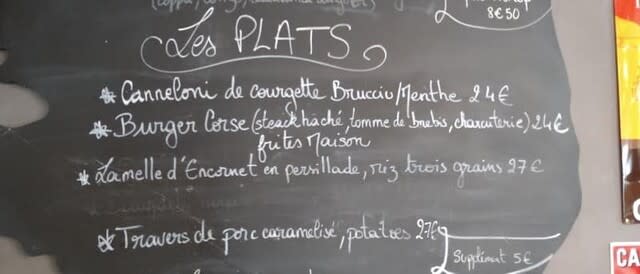 8€50
Les PLATS
* Canneloni de courgette Brucciu/Menthe 24€
* Burger Corse (steack haché, tomme de brebis, charcuterie) 24€
frites Maison
* Lamelle d'Encornet en persillade, riz trois grains 27€
* Travers de porc caramélisé, potatoes 27€
Supplément 5€
CA